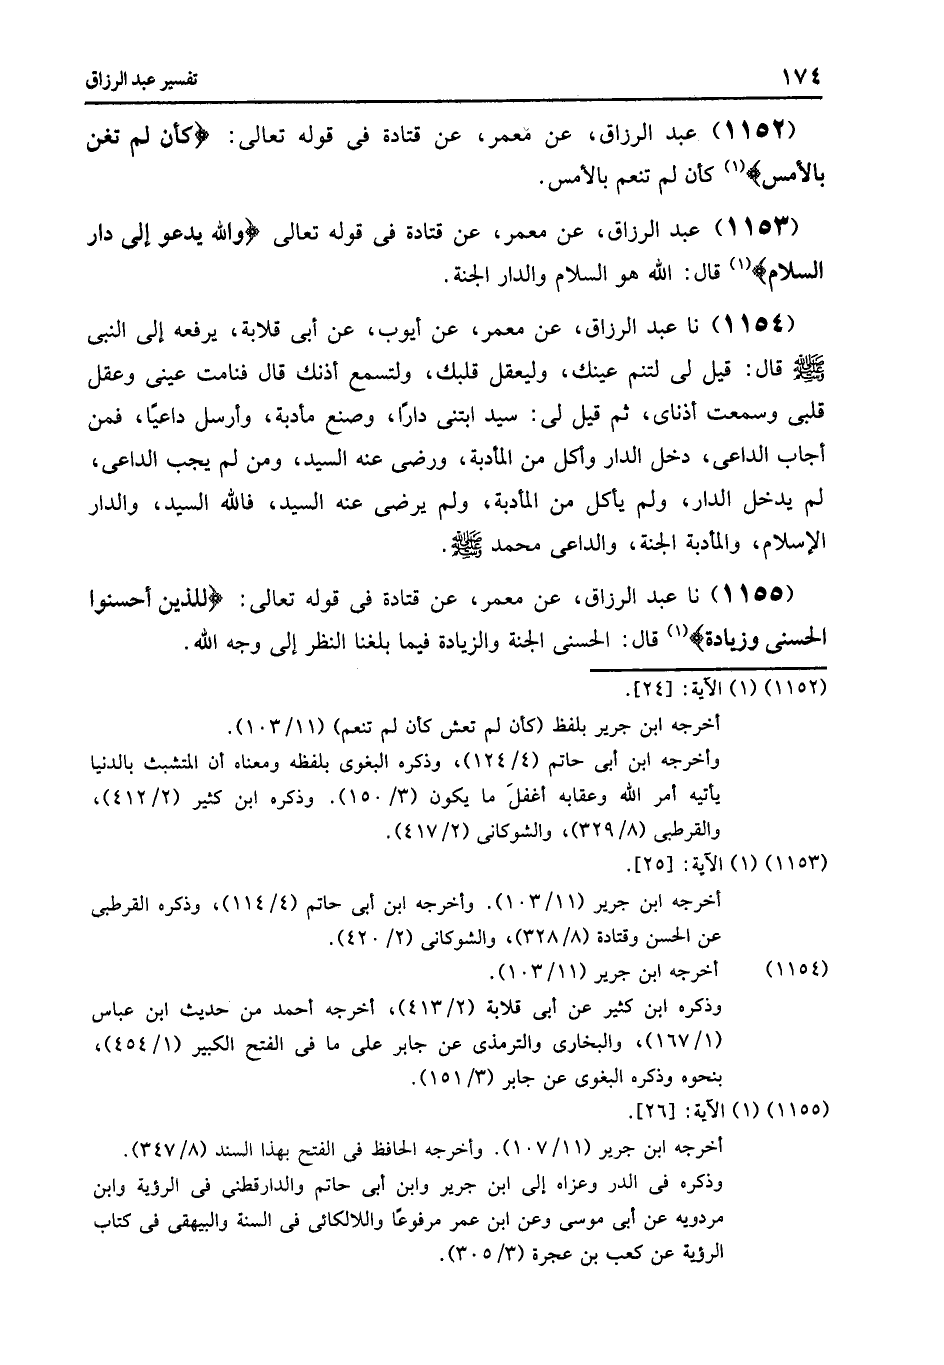 ١٧٤ تفسير عبد الرزاق
(١١٥٢) عبد الرزاق، عن معمر، عن قتادة فى قوله تعالى: ﴿كأن لم تغن
بالأمس﴾(١) كأن لم تنعم بالأمس.
(١١٥٣) عبد الرزاق، عن معمر، عن قتادة فى قوله تعالى ﴿والله يدعو إلى دار
السلام﴾(١) قال: الله هو السلام والدار الجنة.
(١١٥٤) نا عبد الرزاق، عن معمر، عن أيوب، عن أبى قلابة، يرفعه إلى النبى
ﷺ قال: قيل لى لتنم عينك، وليعقل قلبك، ولتسمع أذنك قال فنامت عينى وعقل
قلبى وسمعت أذناى، ثم قيل لى: سيد ابتنى دارًا، وصنع مأدبة، وأرسل داعيًا، فمن
أجاب الداعى، دخل الدار وأكل من المأدبة، ورضى عنه السيد، ومن لم يجب الداعى،
لم يدخل الدار، ولم يأكل من المأدبة، ولم يرضى عنه السيد، فالله السيد، والدار
الإسلام، والمأدبة الجنة، والداعى محمد ﷺ.
(١١٥٥) نا عبد الرزاق، عن معمر، عن قتادة فى قوله تعالى: ﴿للذين أحسنوا
الحسنى وزيادة﴾(١) قال: الحسنى الجنة والزيادة فيما بلغنا النظر إلى وجه الله.
(١١٥٢) (١) الآية: [٢٤].
أخرجه ابن جرير بلفظ (كأن لم تعش كأن لم تنعم) (١٠٣/١١).
وأخرجه ابن أبى حاتم (١٢٤/٤)، وذكره البغوى بلفظه ومعناه أن المتشبث بالدنيا
يأتيه أمر الله وعقابه أغفلَ ما يكون (١٥٠/٣). وذكره ابن كثير (٤١٢/٢)،
والقرطبى (٣٢٩/٨)، والشوكانى (٤١٧/٢).
(١١٥٣) (١) الآية: [٢٥].
أخرجه ابن جرير (١٠٣/١١). وأخرجه ابن أبى حاتم (١١٤/٤)، وذكره القرطبى
عن الحسن وقتادة (٣٢٨/٨)، والشوكانى (٤٢٠/٢).
(١١٥٤) أخرجه ابن جرير (١٠٣/١١).
وذكره ابن كثير عن أبى قلابة (٤١٣/٢)، أخرجه أحمد من حديث ابن عباس
(١٦٧/١)، والبخارى والترمذى عن جابر على ما فى الفتح الكبير (٤٥٤/١)،
بنحوه وذكره البغوى عن جابر (١٥١/٣).
(١١٥٥) (١) الآية: [٢٦].
أخرجه ابن جرير (١٠٧/١١). وأخرجه الحافظ فى الفتح بهذا السند (٣٤٧/٨).
وذكره فى الدر وعزاه إلى ابن جرير وابن أبى حاتم والدارقطنى فى الرؤية وابن
مردويه عن أبى موسى وعن ابن عمر مرفوعًا واللالكائى فى السنة والبيهقى فى كتاب
الرؤية عن كعب بن عجرة (٣٠٥/٣).